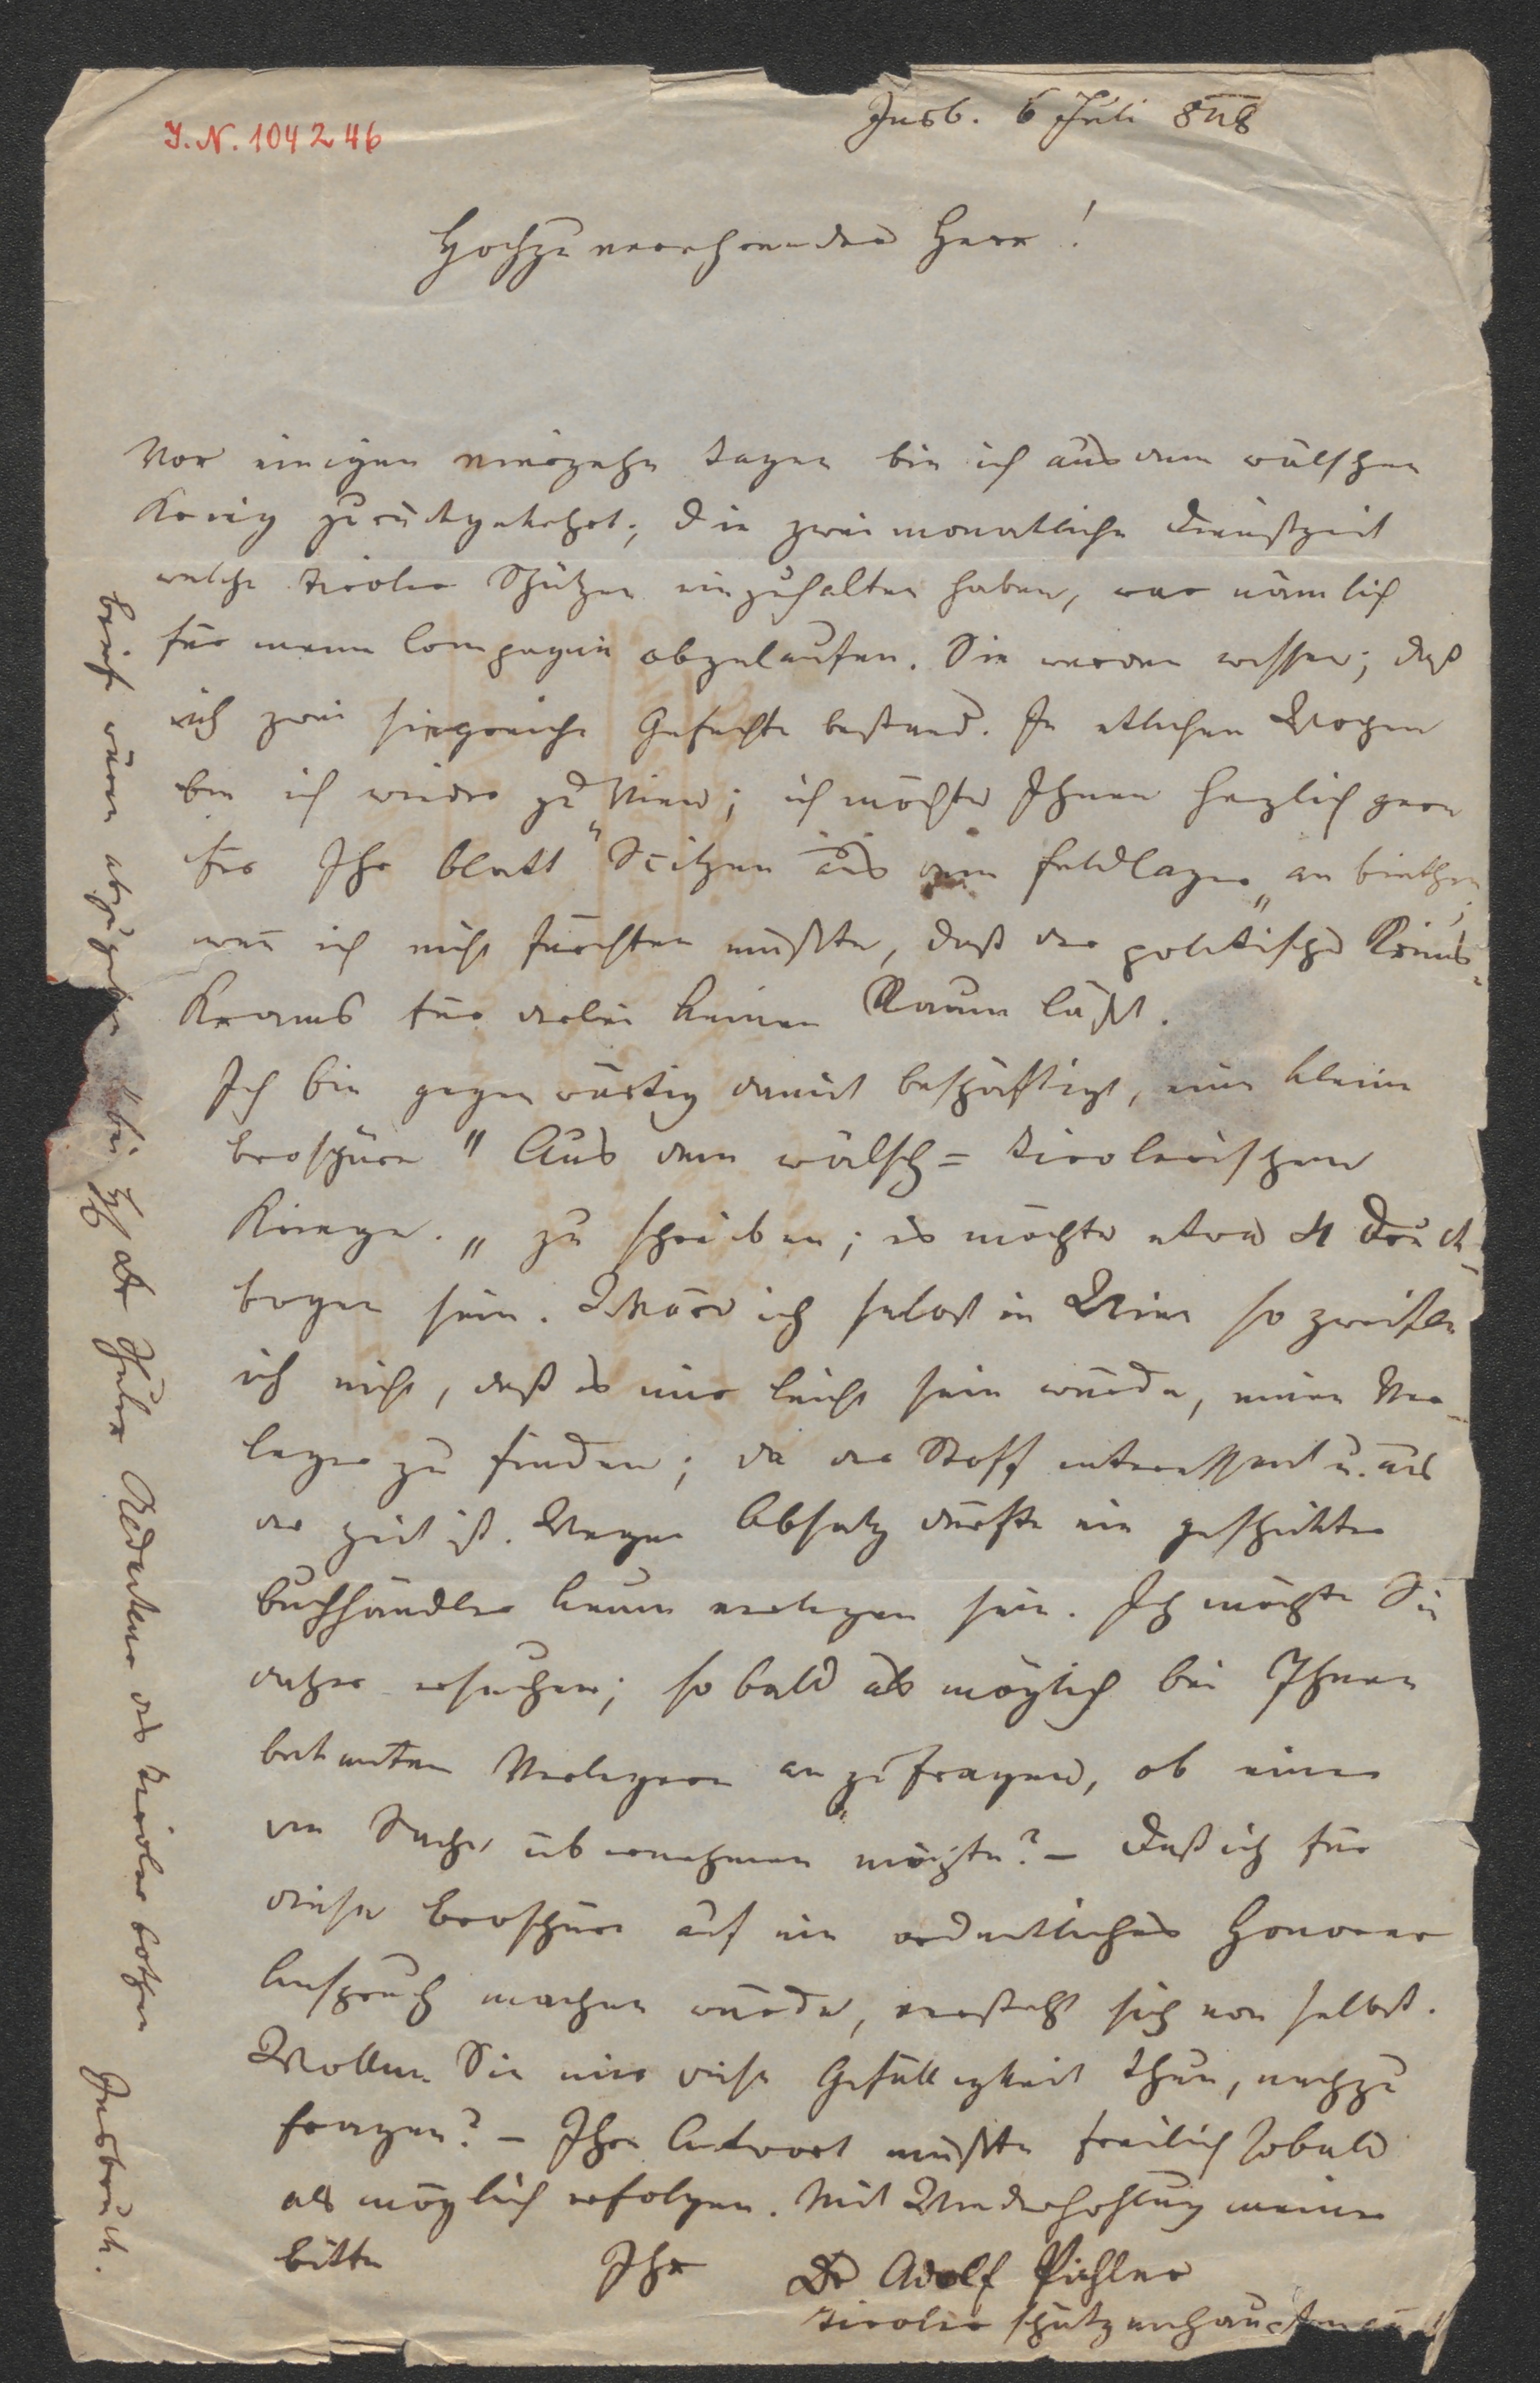 I.N. 104246
Insb. 6 Juli 848
Hochzuverehrender Herr!
Vor einigen vierzehn Tagen bin ich aus dem wälschen
Krieg zurückgekehrt; die zweimonatliche Dienstzeit
welche Tiroler Schützen einzuhalten haben, war nämlich
für meine Compagnie abgelaufen. Sie werden wissen; daß
ich zwei siegreiche Gefechte bestand. In etlichen Wochen
bin ich wieder zu Wien; ich möchte Ihnen herzlich gern
für Ihr Blatt "Scitzen aus dem Feldlager" an biethen,
wen ich nicht fürchten müßte, daß der politische
Krams für derlei keinen Raum läßt.
Ich bin gegenwärtig damit beschäftigt, eine kleine
Broschüre "Aus dem wälsch=tirolerischen
Kriege." zu schreiben; es möchte etwa 4 Druck-
bogen sein. Wäre ich selbst in Wien so zweifle
ich nicht, daß es mir leicht sein würde, einen Ver-
leger zu finden; da der Stoff interessant u. aus
der Zeit ist. Wegen Absatz dürfte ein geschickter
Buchhändler kaum verlegen sein. Ich möchte Sie
daher ersuchen; so bald als möglich bei Ihnen
bekanten Verlegern an zu fragen, ob einer
die Sache übernehmen möchte? – Daß ich für
diese Broschüre auf ein ordentliches Honorar
Anspruch machen würde, versteht sich von selbst.
Wollen Sie mir diese Gefälligkeit thun, nachzu
fragen? – Ihre Antwort müßte freilich sobald
als möglich erfolgen. Mit Wiederhohlung meiner
Bitte Ihr Dr Adolf Pichler
Tiroler Schützenhauptmann
Briefe wären abzugeben bei H Dr Schuler Redakteur des Tiroler Bothen Insbruck.